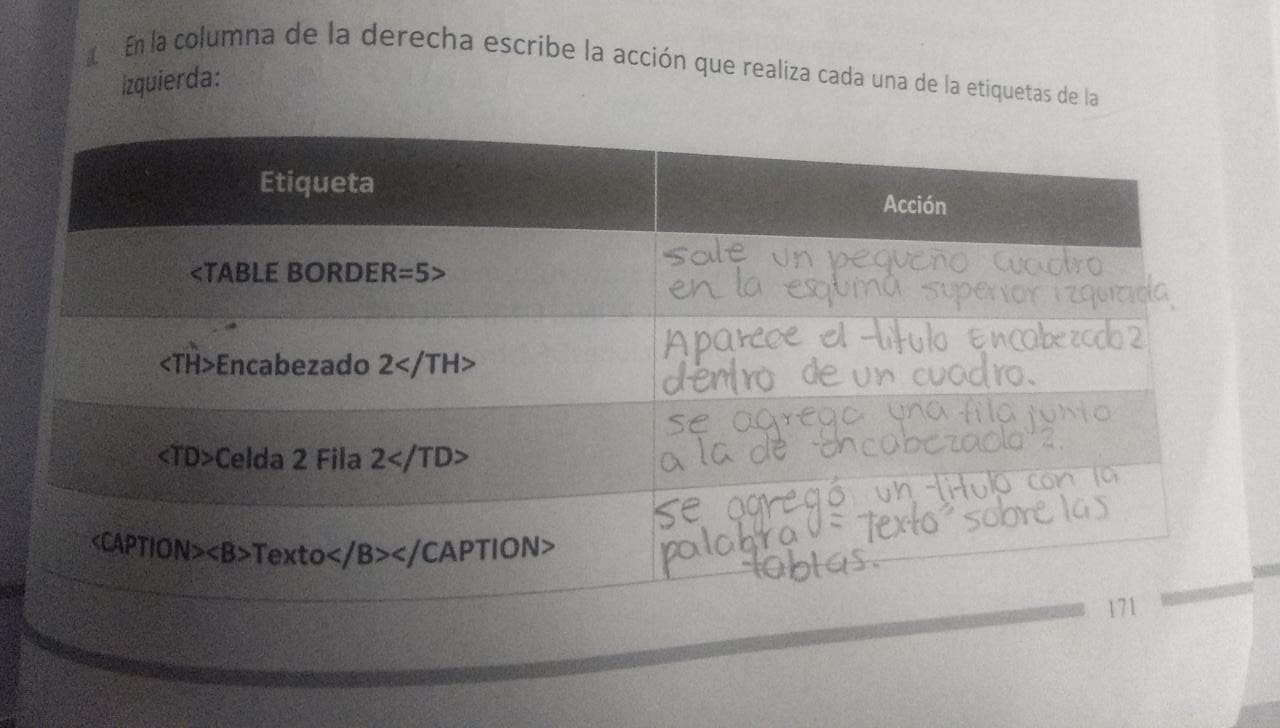 En la columna de la derecha escribe la acción que realiza cada una de la etiquetas de la
izquierda:
Etiqueta
Acción
<TABLE BORDER=5>
sale un pequeño cuadro
en la esquina superior izquierda
<TH>Encabezado 2</TH>
Aparece el titulo Encabezado 2
dentro de un cuadro.
<TD>Celda 2 Fila 2</TD>
se agrego una fila junto
a la de encabezado 2.
<CAPTION><B>Texto</B></CAPTION>
se agregó un titulo con la
palabra "Texto" sobre las
tablas.
171